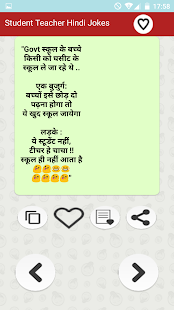 17:58
Student Teacher Hindi Jokes
"Govt स्कूल के बच्चे
किसी को घसीट के
स्कूल ले जा रहे थे ..
एक बुजुर्ग:
बच्चों इसे छोड़ दो
पढ़ना होगा तो
ये खुद स्कूल जायेगा
लड़के :
ये स्टूडेंट नहीं,
टीचर हे चाचा !!
स्कूल ही नहीं आता है